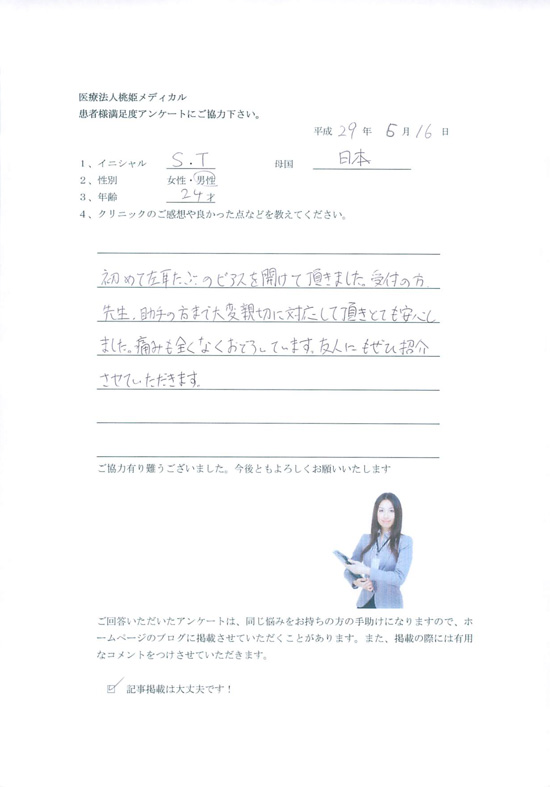 医療法人桃姫メディカル
患者様満足度アンケートにご協力下さい。
平成 29 年 5 月 16 日
1、イニシャル S.T 母国 日本
2、性別 女性・男性
3、年齢 24才
4、クリニックのご感想や良かった点などを教えてください。
初めて左耳たぶのピアスを開けて頂きました。受付の方、
先生、助手の方まで大変親切に対応して頂きとても安心し
ました。痛みも全くなくおどろいています。友人にもぜひ紹介
させていただきます。
ご協力有り難うございました。今後ともよろしくお願いいたします
ご回答いただいたアンケートは、同じ悩みをお持ちの方の手助けになりますので、ホ
ームページのブログに掲載させていただくことがあります。また、掲載の際には有用
なコメントをつけさせていただきます。
☑ 記事掲載は大丈夫です！